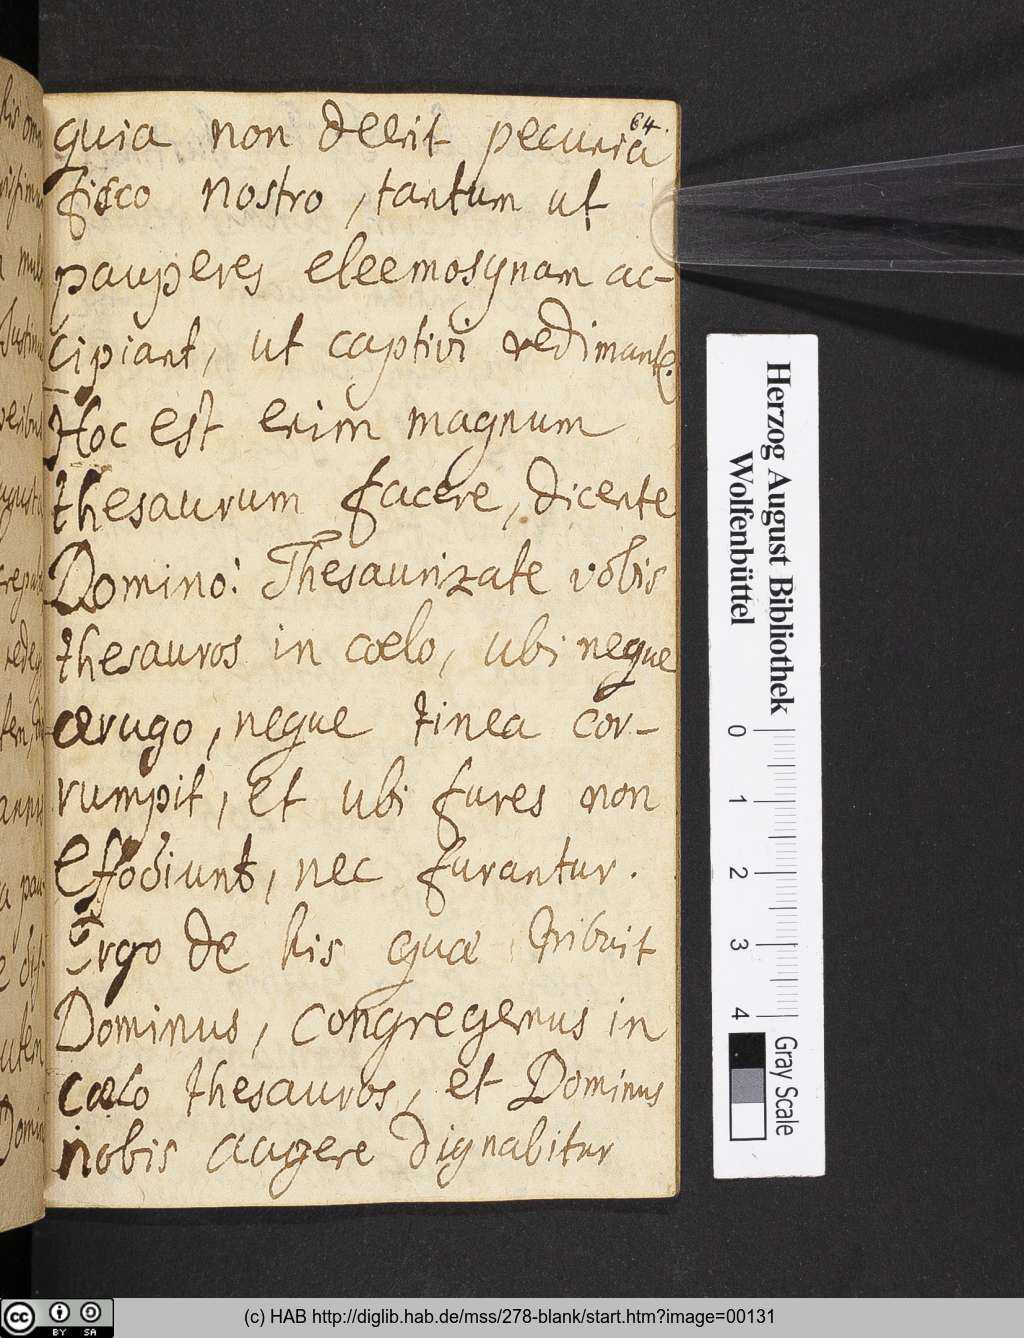 64.
quia non deerit pecunia
fisco nostro, tantum ut
pauperes eleemosynam ac-
cipiant, ut captivi redimant.
Hoc est enim magnum
thesaurum facere, dicente
Domino: Thesaurizate vobis
thesauros in cœlo, ubi neque
ærugo, neque tinea cor-
rumpit, et ubi fures non
effodiunt, nec furantur.
Ergo de his quæ tribuit
Dominus, congregemus in
cœlo thesauros, et Dominus
nobis augere dignabitur
Herzog August Bibliothek
Wolfenbüttel
0 1 2 3 4
Gray Scale
cc BY SA
(c) HAB http://diglib.hab.de/mss/278-blank/start.htm?image=00131